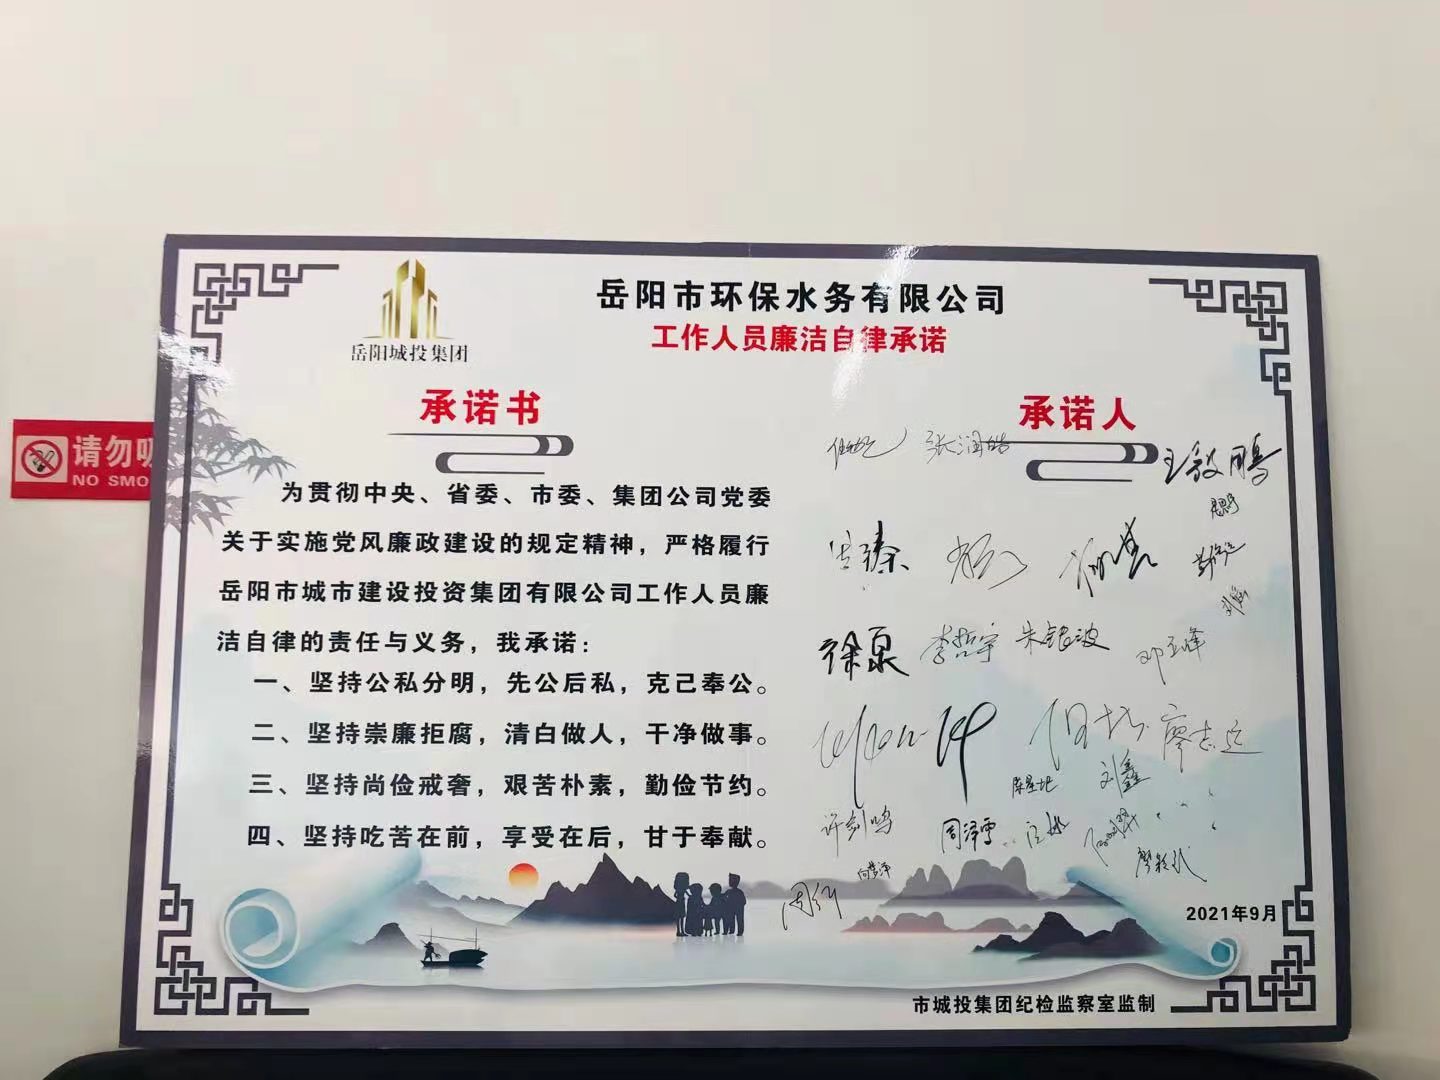 岳阳城投集团
岳阳市环保水务有限公司
工作人员廉洁自律承诺
承诺书
为贯彻中央、省委、市委、集团公司党委
关于实施党风廉政建设的规定精神，严格履行
岳阳市城市建设投资集团有限公司工作人员廉
洁自律的责任与义务，我承诺：
一、坚持公私分明，先公后私，克己奉公。
二、坚持崇廉拒腐，清白做人，干净做事。
三、坚持尚俭戒奢，艰苦朴素，勤俭节约。
四、坚持吃苦在前，享受在后，甘于奉献。
承诺人
张润皓
王毅鹏
徐泉 李哲宇 朱银波
邓玉峰
廖志远
刘鑫
许剑鸣
周泽雪
向梦泽
2021年9月
市城投集团纪检监察室监制
请勿吸
NO SMO